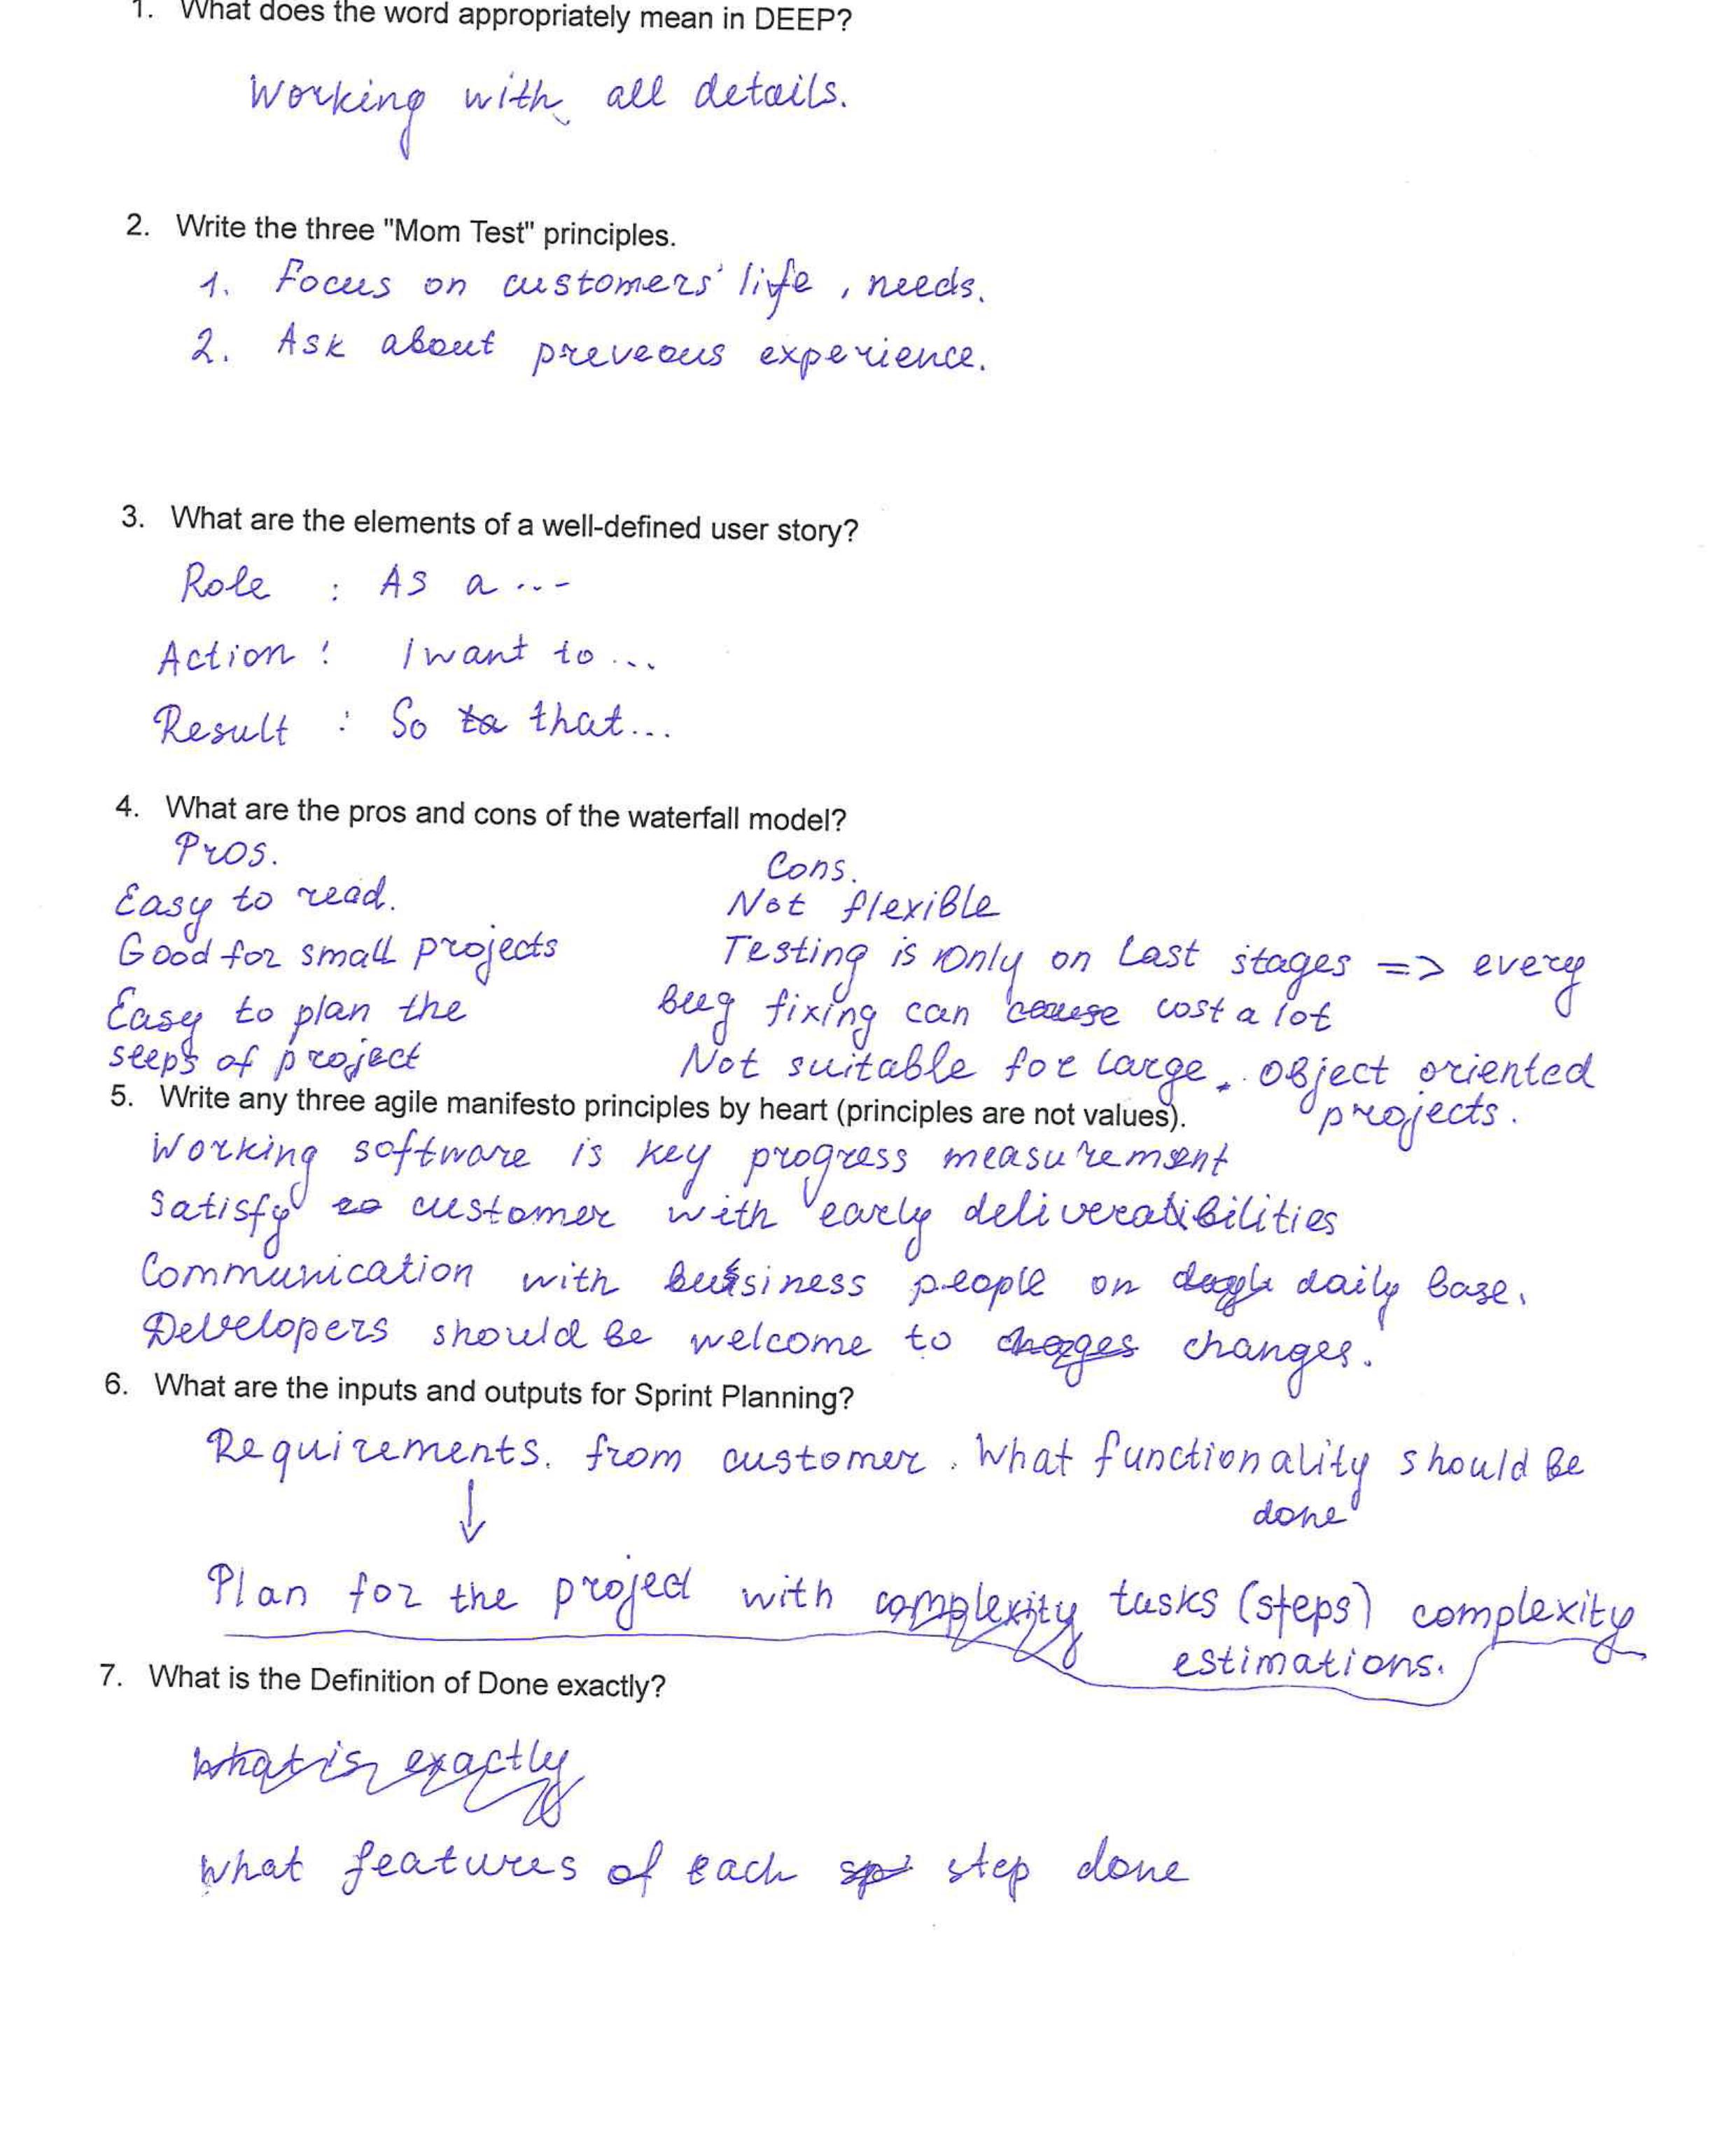 1. What does the word appropriately mean in DEEP?
Working with all details.
2. Write the three "Mom Test" principles.
1. Focus on customers' life, needs.
2. Ask about preveous experience.
3. What are the elements of a well-defined user story?
Role : As a ...
Action : I want to ...
Result : So ta that...
4. What are the pros and cons of the waterfall model?
Pros.
Cons.
Easy to read.
Not flexible
Good for small projects
Testing is only on last stages => every
Easy to plan the
bug fixing can cause cost a lot
steps of project
Not suitable for large, object oriented
5. Write any three agile manifesto principles by heart (principles are not values).
projects.
Working software is key progress measurement
Satisfy to customer with early deliveratibilities
Communication with business people on daily base.
Developers should be welcome to chages changes.
6. What are the inputs and outputs for Sprint Planning?
Requirements. from customer. What functionality should be
done
↓
Plan for the project with complexity tasks (steps) complexity
estimations.
7. What is the Definition of Done exactly?
What is exactly
What features of each sp step done